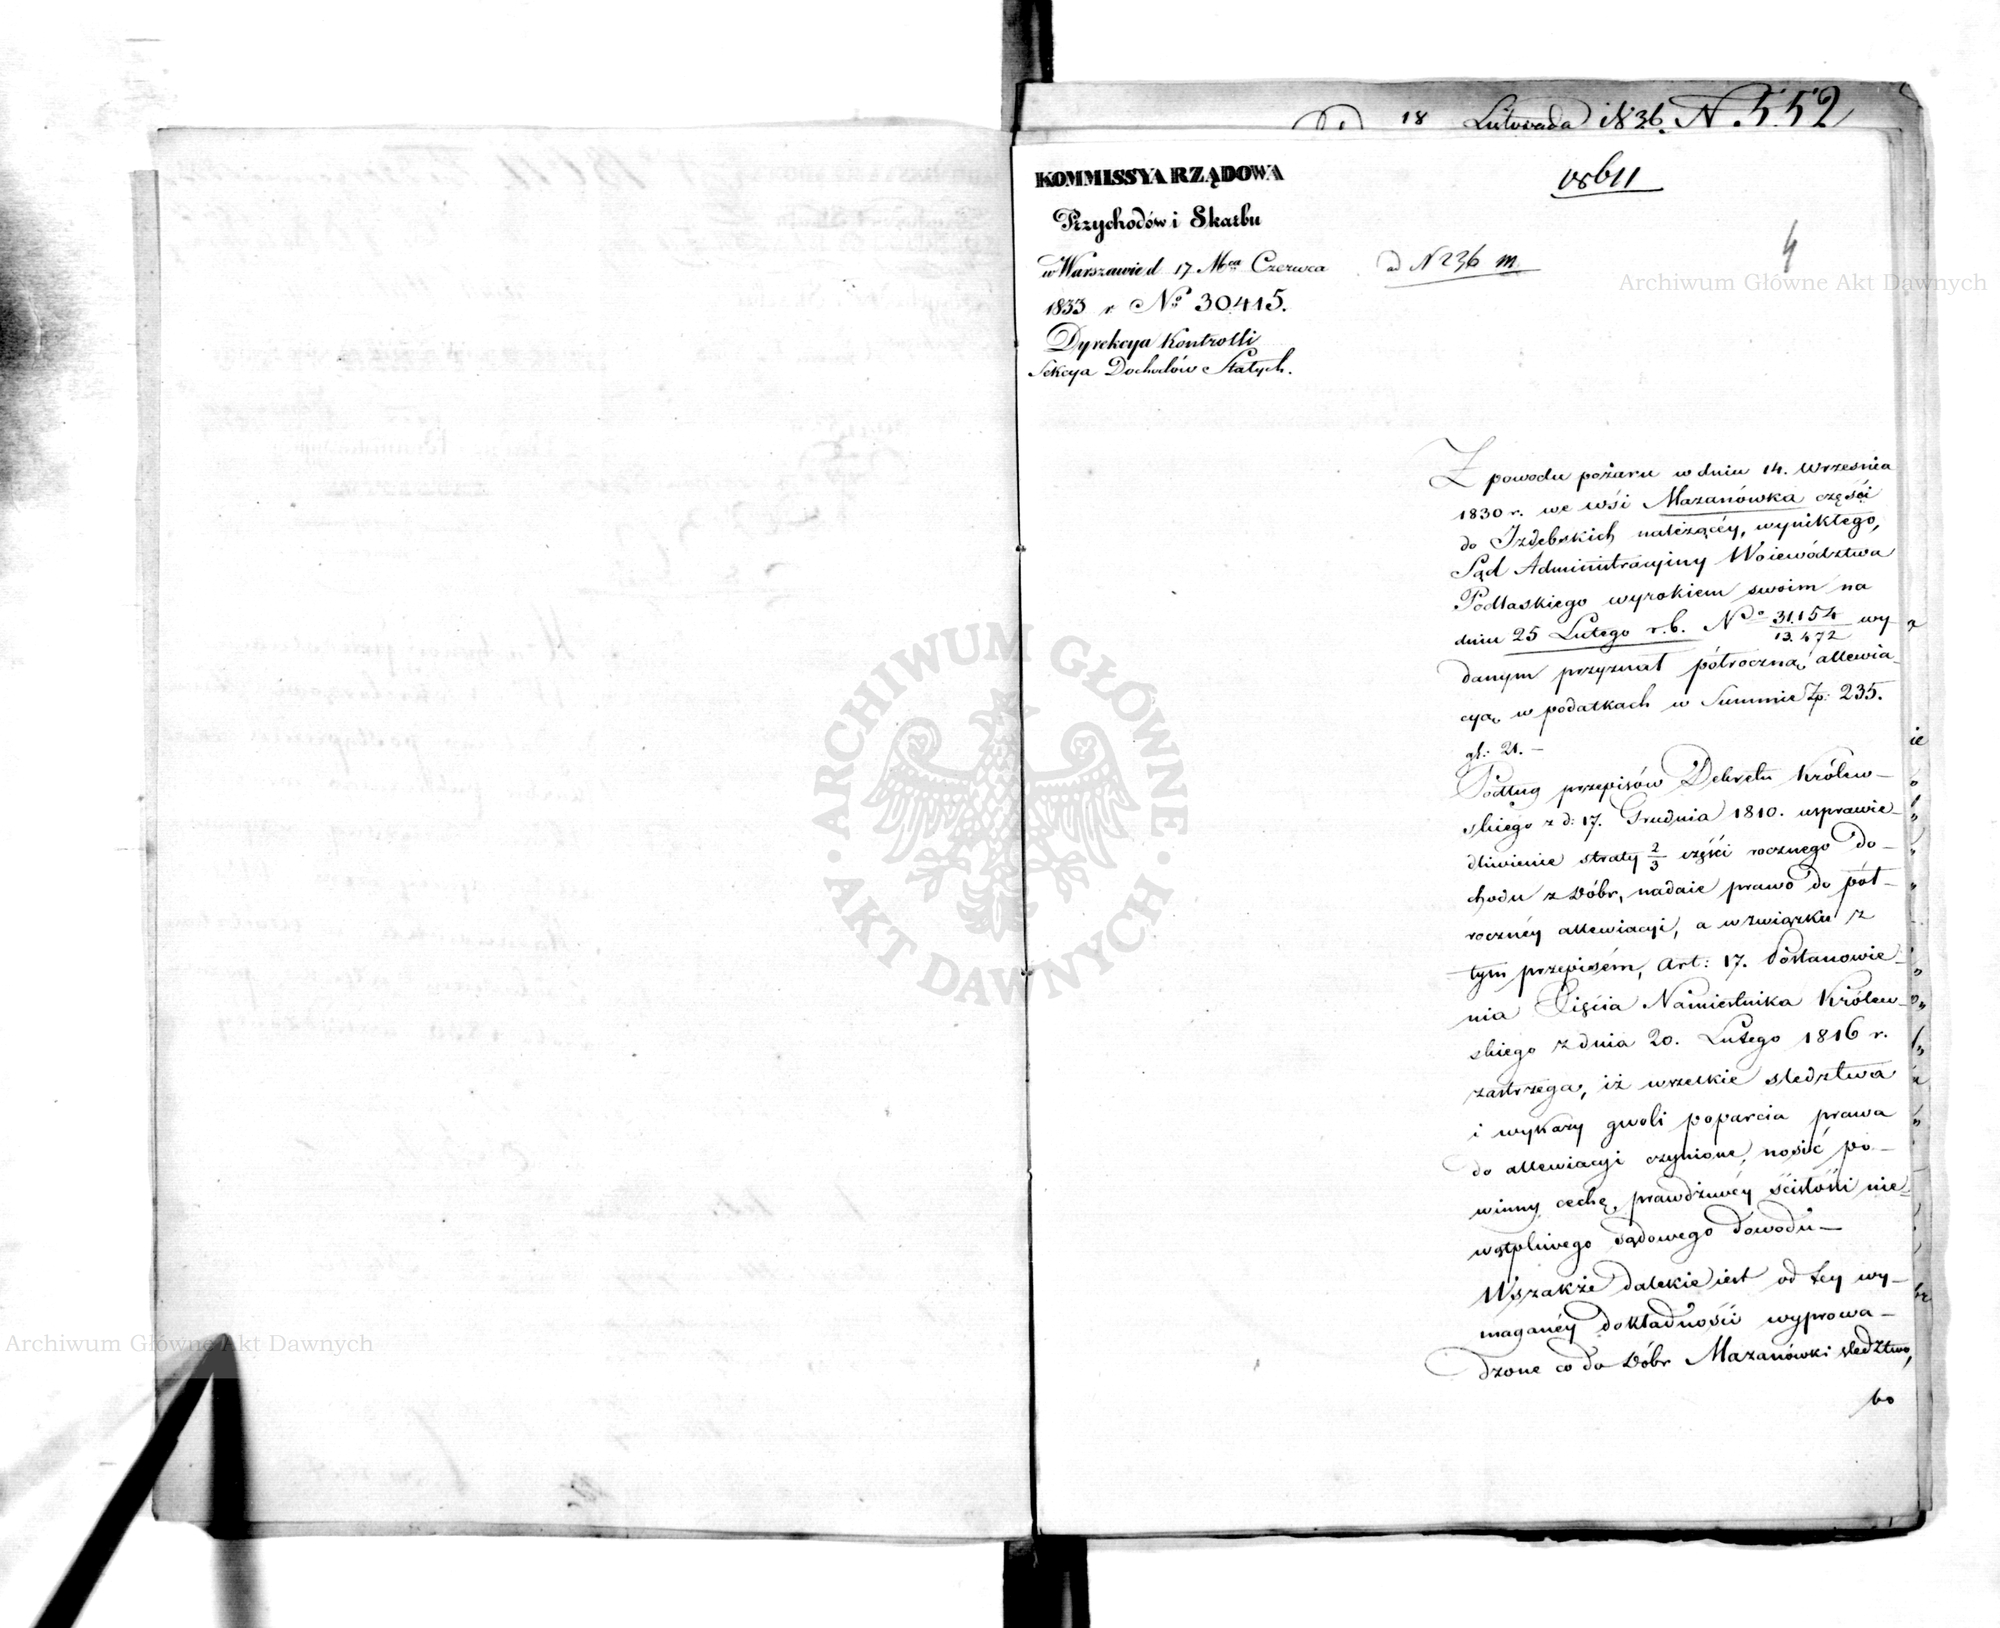 18 Listopada 1836. N. 552
KOMMISSYA RZĄDOWA
Przychodów i Skarbu
w Warszawie d 17 Mca Czerwca
1833 r No 30415.
Dyrekcya Kontrolli
Sekcya Dochodów Stałych.
ad N 236 m.
4
Z powodu pożaru w dniu 14. Września
1830 r. we wśi Mazanówka częśći
do Izdebskich należącéy, wynikłego,
Sąd Administracyiny Woiewództwa
Podlaskiego wyrokiem swoim na
dniu 25 Lutego r. b. No 31.154/13.472 wy
danym przyznał półroczną allewia
cyą w podatkach w Summie Zp: 235.
gł: 21. —
Podług przepisów Dekretu Królew—
skiego z d: 17. Grudnia 1810. usprawie—
dliwienie straty 2/3 częśći rocznego do—
chodu z Dóbr, nadaie prawo do pół—
rocznéy allewiacyi, a w związku z
tym przepisém, Art: 17. Postanowie—
nia Xięcia Namiestnika Królew—
skiego z dnia 20. Lutego 1816 r.
zastrzega, iż wszelkie sledztwa
i wykazy gwoli poparcia prawa
do allewiacyi czynione, nosić po—
winny cechę prawdziwéy śćisłośći nie—
wątpliwego sądowego dowodu—
Wszakże dalekie iest od tey wy—
maganéy dokładnośći wyprowa—
dzone co do Dóbr Mazanówki sledztwo,
bo
Archiwum Główne Akt Dawnych
Archiwum Główne Akt Dawnych
ARCHIWUM GŁÓWNE
AKT DAWNYCH